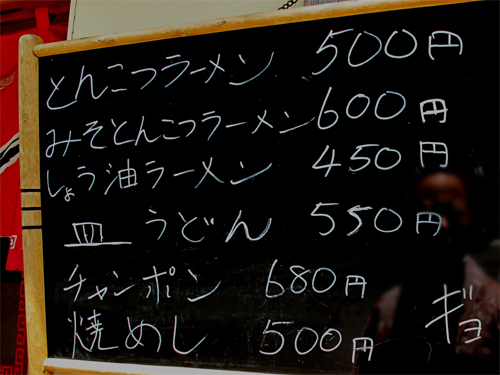 とんこつラーメン 500円
みそとんこつラーメン 600円
しょう油ラーメン 450円
皿うどん 550円
チャンポン 680円
焼めし 500円
ギョ